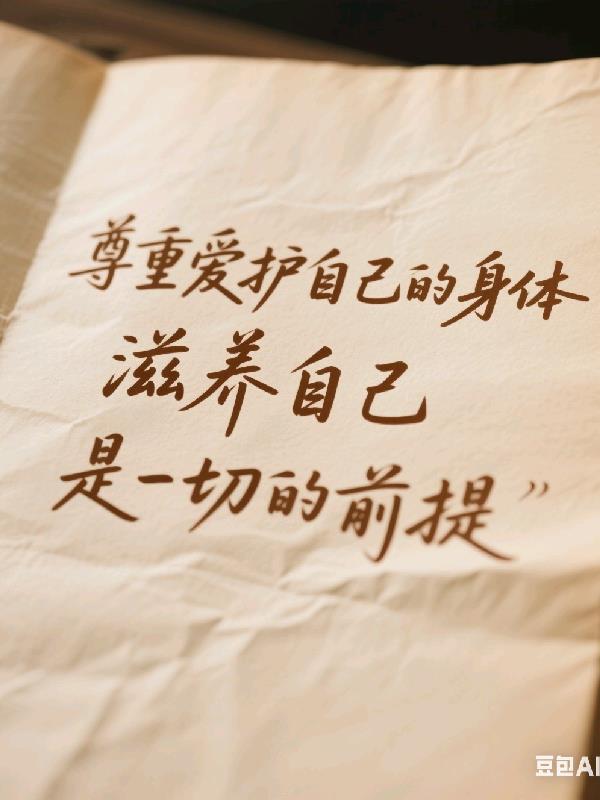 尊重爱护自己的身体
滋养自己
是一切的前提”
豆包AI